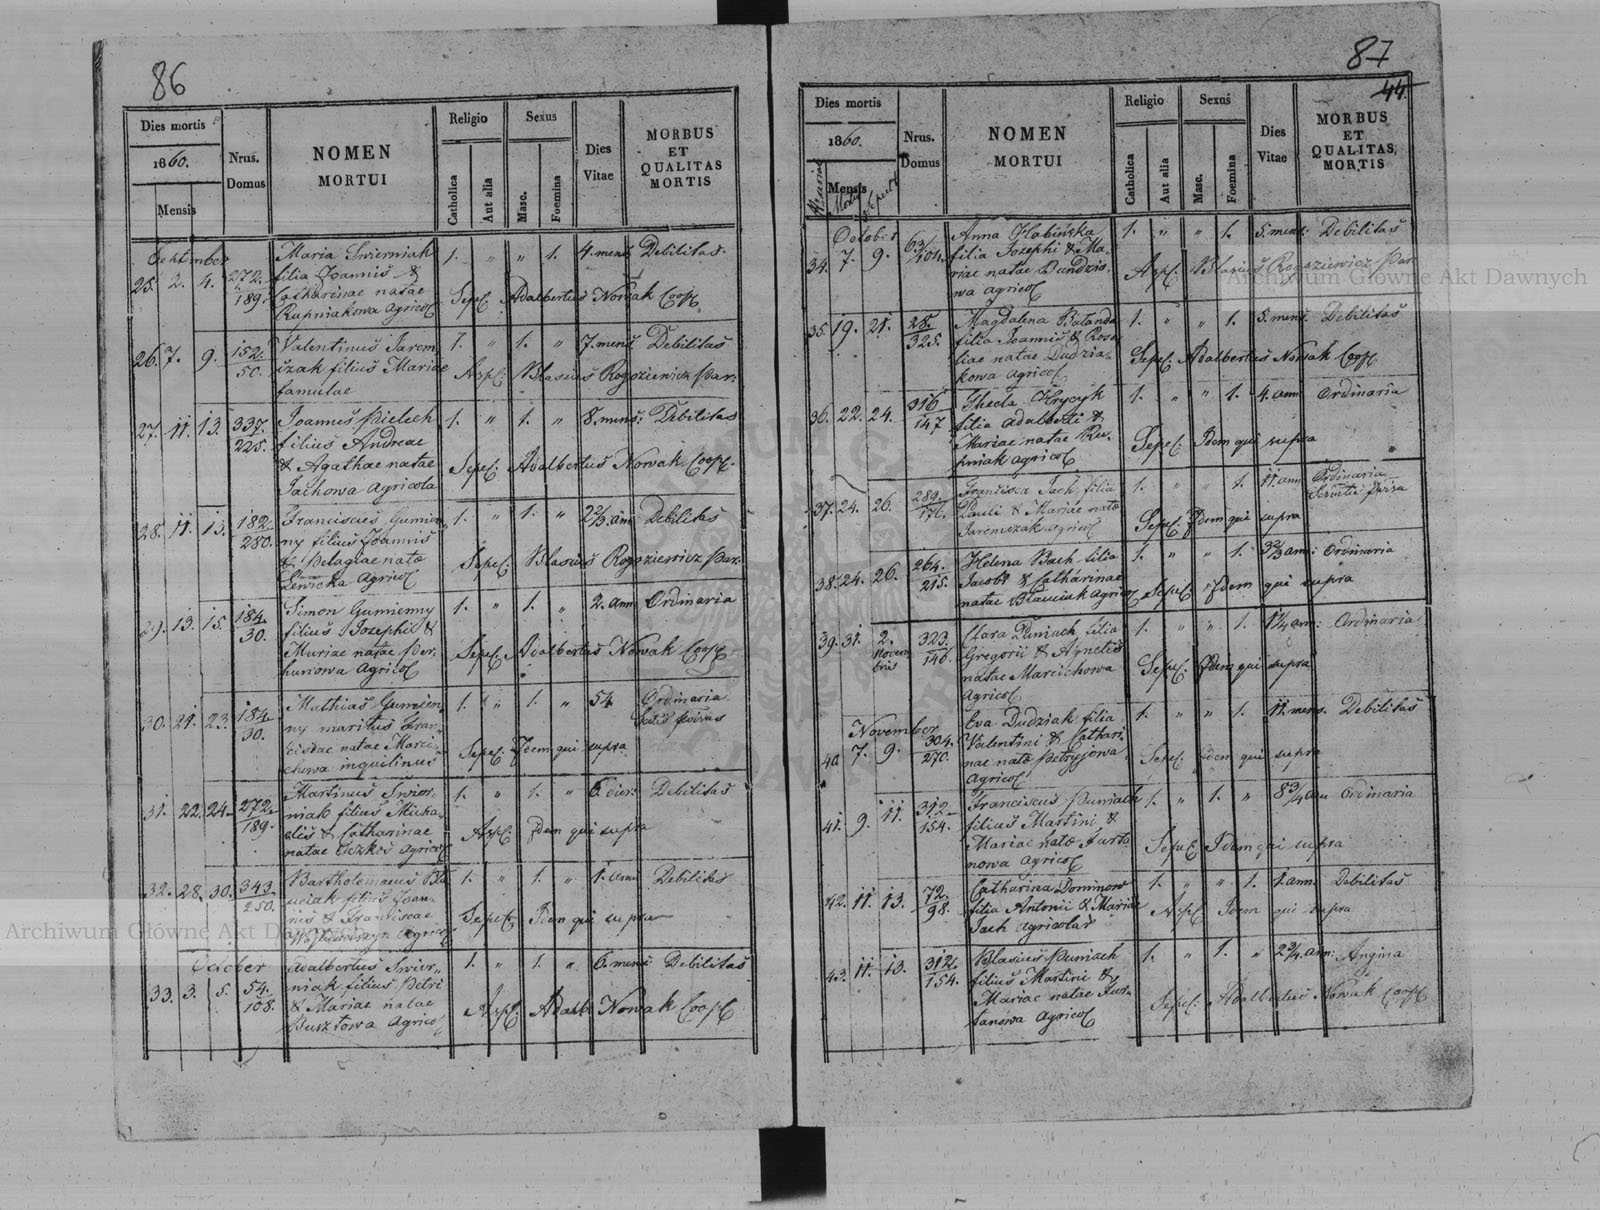 86
Dies mortis
1860.
Mensis
Nrus.
Domus
NOMEN
MORTUI
Religio
Catholica
Aut alia
Sexus
Masc.
Foemina
Dies
Vitae
MORBUS
ET
QUALITAS
MORTIS
September
25. 2. 4. 272. 189.
Maria Swierniak
filia Joannis &
Catharinae natae
Rupniakowa agricol
1. " " 1. 4. mens Debilitas.
Sepel. Adalbertus Nowak Coop.
26. 7. 9. 152. 50.
Valentinus Jarem-
czak filius Mariae
famulae
1. " 1. " 7. mens Debilitas
Asp. Blasius Rogoziewicz Par.
27. 11. 13. 337. 225.
Joannes Pielech
filius Andreae
& Agathae natae
Jachowa agricola
1. " 1. " 8. mens: Debilitas
Sepel. Adalbertus Nowak Coop.
28. 11. 13. 182. 280.
Franciscus Gumien-
ny filius Joannis
& Pelagiae natae
agricol
1. " 1. " 2 2/3 ann Debilitas
Sepel. Blasius Rogoziewicz Par.
29. 13. 15. 184. 30.
Simon Gumienny
filius Josephi &
Mariae natae Per-
hunowa agricol
1. " 1. " 2. ann Ordinaria
Sepel. Adalbertus Nowak Coop.
30. 21. 23. 184. 30.
Mathias Gumien-
ny maritus Fran-
ciscae natae Marci-
chowa inquilinus
1. " 1. " 54 Ordinaria
provisus
Sepel. Idem qui supra
31. 22. 24. 272. 189.
Martinus Swier-
niak filius Micha-
elis & Catharinae
natae agricol
1. " 1. " 6. dier: Debilitas
Asp. Idem qui supra
32. 28. 30. 343. 250.
Bartholomaeus Bla-
uciak filius Joan-
nis & Franciscae
agricol
1. " 1. " 1. ann Debilitas
Sepel. Idem qui supra
October
33. 3. 5. 54. 108.
Adalbertus Swier-
niak filius Petri
& Mariae natae
Busztowa agricol
1. " 1. " 6. mens: Debilitas
Asp. Adalb. Nowak Coop.
87
44.
Dies mortis
1860.
Mensis
Nrus.
Domus
NOMEN
MORTUI
Religio
Catholica
Aut alia
Sexus
Masc.
Foemina
Dies
Vitae
MORBUS
ET
QUALITAS
MORTIS
October
34. 7. 9. 63/104.
Anna Habinska
filia Josephi & Ma-
riae natae Dundzio-
wa agricol
1. " " 1. 5. mens: Debilitas
Asp. Blasius Rogoziewicz Par
35. 19. 21. 28. 325.
Magdalena Batanda
filia Joannis & Rosa-
liae natae Dudzia-
kowa agricol
1. " " 1. 5. mens. Debilitas
Sepel. Adalbertus Nowak Coop.
36. 22. 24. 316 147
Thecla Hrycyk
filia Adalberti &
Mariae natae Ru-
pniak agricol
1. " " 1. 4. ann Ordinaria
Sepel. Idem qui supra
37. 24. 26. 289. 176.
Francisca Jach filia
Pauli & Mariae natae
Jaremczak agricol
1. " " 1. 11. ann Ordinaria
provisa
Sepel. Idem qui supra
38. 24. 26. 264. 215.
Helena Bach filia
Jacobi & Catharinae
natae Blauciak agricol
1. " " 1. 3 2/3 ann: Ordinaria
Sepel. Idem qui supra
39. 31. 2. Novem bris 323. 146.
Clara Puniach filia
Gregorii & Agnetis
natae Marcichowa
agricol
1. " " 1. 1 1/4 ann: Ordinaria
Sepel. Idem qui supra
November
40 7. 9. 304. 270.
Eva Dudziak filia
Valentini & Cathari-
nae natae Petryjowa
agricol
1. " " 1. 11. mens. Debilitas
Sepel. Idem qui supra
41. 9. 11. 312. 154.
Franciscus Puniach
filius Martini &
Mariae natae Furta
nowa agricol
1. " 1. " 8 3/4 ann Ordinaria
Sepel. Idem qui supra
42. 11. 13. 72. 98.
Catharina Dominow
filia Antonii & Mariae
Jach agricolar
1. " " 1. 1. ann. Debilitas
Asp. Idem qui supra
43. 11. 13. 312. 154.
Blasius Puniach
filius Martini &
Mariae natae Fur-
tanowa agricol
1. " 1. " 2 3/4 ann: Angina
Sepel. Adalbertus Nowak Coop.
Archiwum Główne Akt Dawnych
Archiwum Główne Akt Dawnych